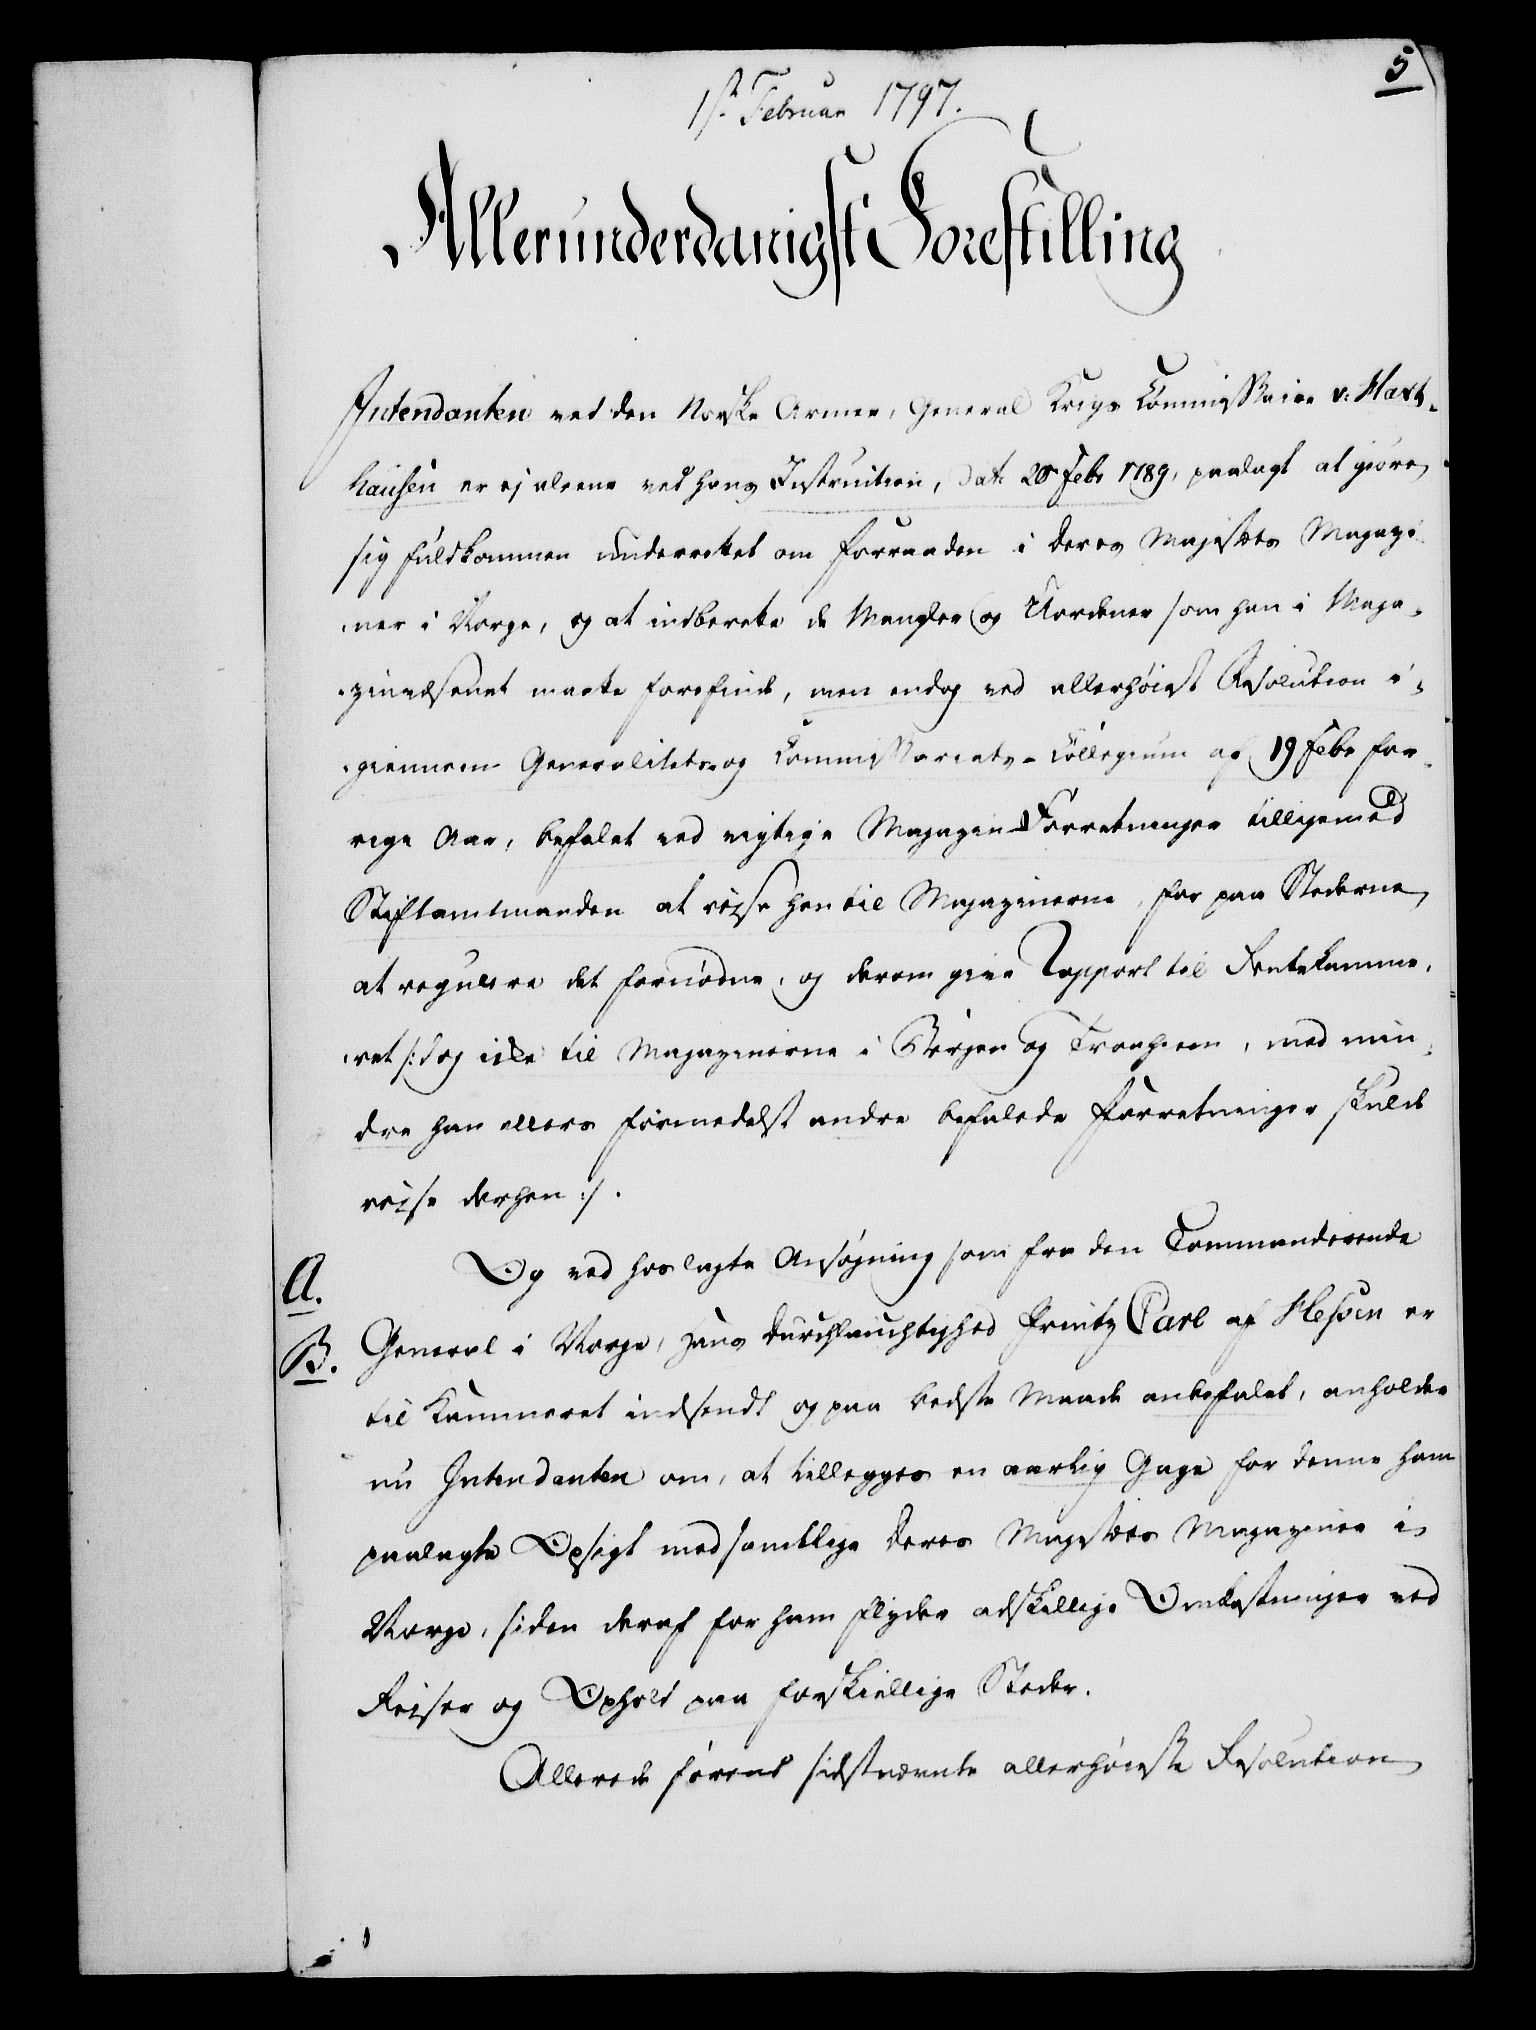 5
1st. Februar 1797.
Allerunderdanigst Forestilling
Intendanten ved den Norske Armee, General Krigs Commissaire v: Haxt-
hausen er ej aleene ved hans Instruction, Dat. 20 Febr 1789, paalagt at giøre
sig fuldkommen underrettet om Forraaden i Deres Majestæts Magazi-
ner i Norge, og at indberette de Mangler og Uordener som han i Maga-
zinvæsenet maatte forefinde, men endog ved allerhøiest Resolution i-
giennem Generalitets- og Commissariats-Collegium af 19 Febr for-
rige Aar, befalet ved vigtige Magazin-Forretninger tilligemed
Stiftamtmanden at reise hen til Magazinerne, for paa Stederne
at regulere det fornødne, og derom give Rapport til Rentekamme-
ret /: dog ikke til Magazinerne i Bergen og Tronhiem, med min-
dre han ellers formedelst andre befalede Forretninger skulde
reise derhen :/.
Og ved hoslagte Ansøgning som fra den Commanderende
A.
B. General i Norge, Hans Durchlauchtighed Printz Carl af Hessen er
til Kammeret indsendt og paa bedste Maade anbefalet, anholder
nu Intendanten om, at tillegges en aarlig Gage for denne ham
paalagte Opsigt med samtlige Deres Majestæts Magaziner i
Norge, siden deraf for ham flyder adskillige Omkostninger ved
Reiser og Ophold paa forskiellige Steder.
Allerede førend sidstnævnte allerhøieste Resolution